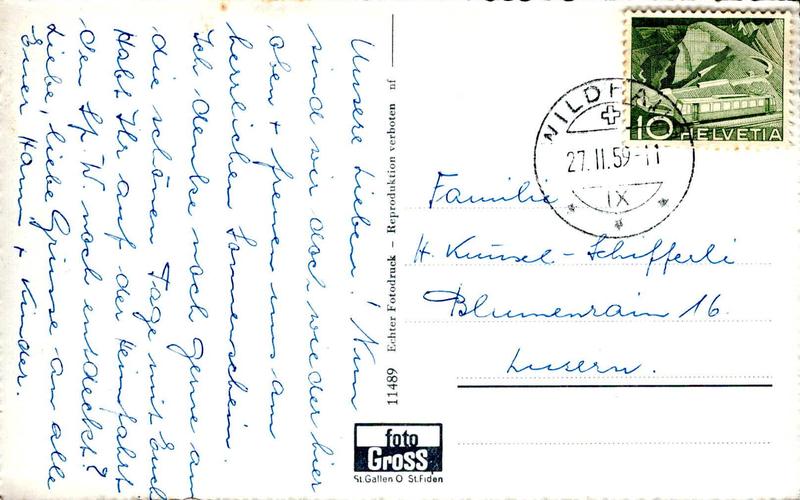 Unsere Lieben! Nun
sind wir doch wieder hier
oben + freuen uns am
herrlichen Sonnenschein.
Ich denke noch gerne an
die schönen Tage mit Euch
Habt Ihr auf der Heimfahrt
den Sp. W. noch entdeckt?
Liebe, liebe Grüsse an alle
Euer Hanni + Kinder.
11489 Echter Fotodruck — Reproduktion verboten nf
foto
Gross
St.Gallen O St.Fiden
WILDHAUS
27.II.59-11
IX
10 HELVETIA
Familie
H. Künsel-Schifferli
Blumenrain 16.
Luzern.